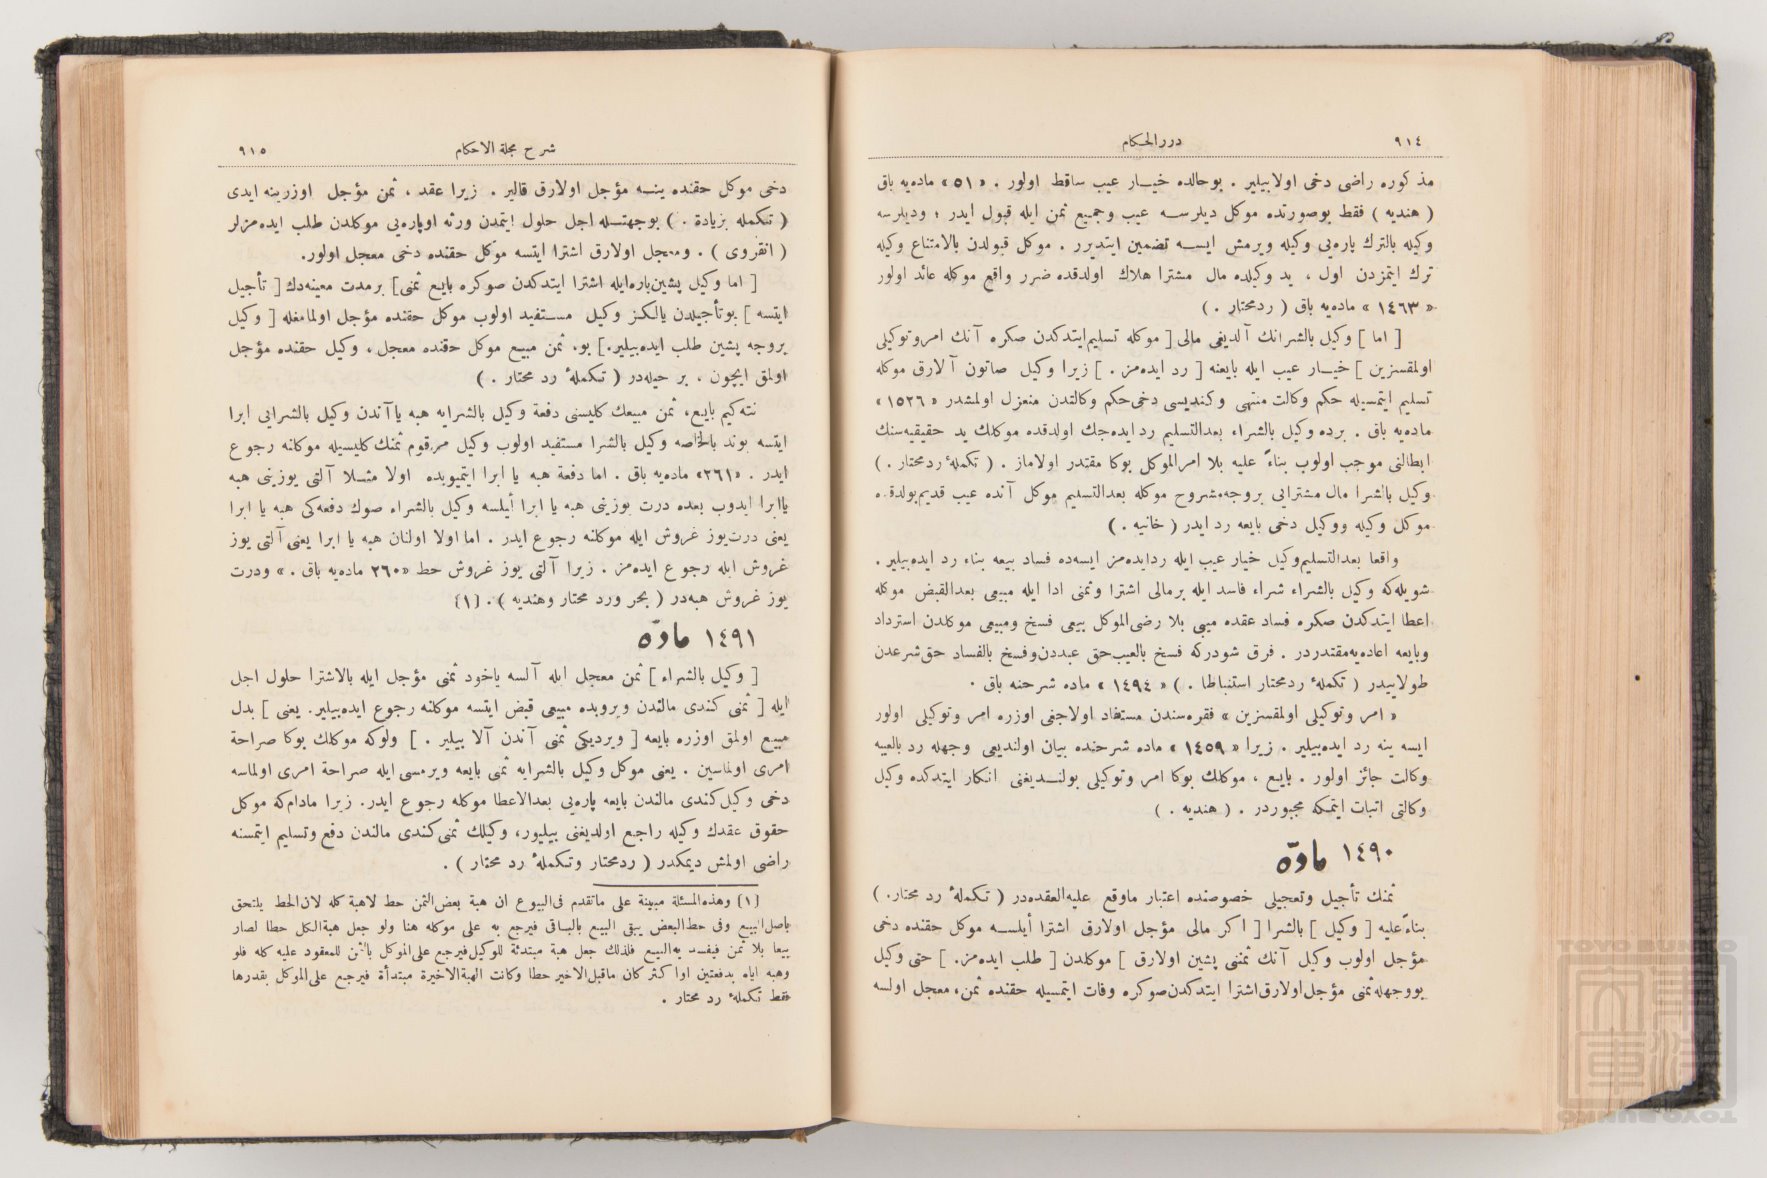 ٩١٤ دررالحكام
مذكوره راضى دخى اولابيلير . بوحالده خيـار عيب ساقط اولور . «٥١» ماده‌يه باق
( هنديه ) فقط بوصورتده موكل ديلرســه عيب وجميع ثمن ايله قبول ايدر ؛ وديلرسه
وكيله بالترك پاره‌يى وكيله ويرمش ايســه تضمين ايتديرر . موكل قبولدن بالامتناع وكيله
ترك ايتمزدن اول ، يد وكيلده مال مشترا هلاك اولدقده ضرر واقع موكله عائد اولور
« ١٤٦٣ » ماده‌يه باق ( ردمحتار . )
[ اما ] وكيل بالشرانك آلديغى مالى [ موكله تسليم‌ايتدكدن صكره آنك امروتوكيلى
اولمقسزين ] خيـار عيب ايله بايعنه [ رد ايده‌مز . ] زيرا وكيل صاتون آلارق موكله
تسليم ايتمسيله حكم وكالت منتهى وكنديسى دخى‌حكم وكالتدن منعزل اولمشدر « ١٥٢٦ »
ماده‌يه باق . برده وكيل بالشراء بعدالتسليم رد ايده‌جك اولدقده موكلك يد حقيقيه‌سنك
ابطالنى موجب اولوب بناءً عليه بلا امرالموكل بوكا مقتدر اولاماز . ( تكملهٔ ردمحتار . )
وكيل بالشرا مال مشترابى بروجه‌مشروح موكله بعدالتسليم موكل آنده عيب قديم‌بولدقده
موكل وكيله ووكيل دخى بايعه رد ايدر ( خانيه . )
واقعا بعدالتسليم‌وكيل خيار عيب ايله ردايده‌مز ايسه‌ده فساد بيعه بناء رد ايده‌بيلير .
شويله‌كه وكيل بالشراء شراء فاسد ايله برمالى اشترا وثمنى ادا ايله مبيعى بعدالقبض موكله
اعطا ايتدكدن صكره فساد عقده مبنى بلا رضى‌الموكل بيعى فسخ ومبيعى موكلدن استرداد
وبايعه اعاده‌يه‌مقتدردر . فرق شودركه فسخ بالعيب‌حق عبددن‌وفسخ بالفساد حق‌شرعدن
طولاييدر ( تكملهٔ ردمحتار استنباطا . ) « ١٤٩٤ » ماده شرحنه باق .
« امر وتوكيلى اولمقسزين » فقره‌سندن مستفاد اولاجغى اوزره امر وتوكيلى اولور
ايسه ينه رد ايده‌بيلير . زيرا « ١٤٥٩ » ماده شرحنده بيان اولنديغى وجهله رد بالعيبه
وكالت جائز اولور . بايع ، موكلك بوكا امر وتوكيلى بولنــديغنى انكار ايتدكده وكيل
وكالتى اثبات ايتمكه مجبوردر . ( هنديه . )
١٤٩٠ مادّه
ثمنك تأجيل وتعجيلى خصوصنده اعتبار ماوقع عليه‌العقده‌در ( تكملهٔ رد محتار. )
بناءً‌عليه [ وكيل ] بالشرا [ اكر مالى مؤجل اولارق اشترا أيلســه موكل حقنده دخى
مؤجل اولوب وكيل آنك ثمننى پشين اولارق ] موكلدن [ طلب ايده‌مز. ] حتى وكيل
بووجهله‌ثمنى مؤجل‌اولارق‌اشترا ايتدكدن‌صوكره وفات ايتمسيله حقنده ثمن، معجل اولسه
شرح مجلة الاحكام ٩١٥
دخى موكل حقنده ينــه مؤجل اولارق قالير . زيرا عقد ، ثمن مؤجل اوزرينه ايدى
( تكمله بزيادة . ) بوجهتــله اجل حلول ايتمدن ورثه اوپاره‌يى موكلدن طلب ايده‌مزلر
( انقروى ) . ومعجل اولارق اشترا ايتسه موكل حقنده دخى معجل اولور.
[ اما وكيل پشين‌پاره‌ايله اشترا ايتدكدن صوكره بايع ثمنى] برمدت معينه‌دك[ تأجيل
ايتسه ] بوتأجيلدن يالكز وكيل مســتفيد اولوب موكل حقنده مؤجل اولمامغله [ وكيل
بروجه پشين طلب ايده‌بيلير.] بو. ثمن مبيع موكل حقنده معجل، وكيل حقنده مؤجل
اولمق ايچون ، بر حيله‌در ( تكملهٔ رد محتار . )
نته‌كيم بايع، ثمن مبيعك كليسنى دفعة وكيل بالشرايه هبه ياآندن وكيل بالشرايى ابرا
ايتسه بوند بالخاصه وكيل بالشرا مستفيد اولوب وكيل مرقوم ثمنك كليسيله موكلنه رجوع
ايدر . «٣٦١» ماده‌يه باق . اما دفعة هبه يا ابرا ايتميوبده اولا مثــلا آلتى يوزينى هبه
ياابرا ايدوب بعده درت يوزينى هبه يا ابرا أيلسه وكيل بالشراء صوك دفعه‌كى هبه يا ابرا
يعنى درت‌يوز غروش ايله موكلنه رجوع ايدر . اما اولا اولنان هبه يا ابرا يعنى آلتى يوز
غروش ايله رجوع ايده‌مز . زيرا آلتى يوز غروش حط «٢٦٠ ماده‌يه باق . » ودرت
يوز غروش هبه‌در ( بحر ورد محتار وهنديه ) . [١]
١٤٩١ مادّه
[ وكيل بالشراء ] ثمن معجل ايله آلسه ياخود ثمنى مؤجل ايله بالاشترا حلول اجل
ايله [ ثمنى كندى مالندن ويروبده مبيعى قبض ايتسه موكلنه رجوع ايده‌بيلير. يعنى ] بدل
مبيع اولمق اوزره بايعه [ ويرديكى ثمنى آندن آلا بيلير . ] ولوكه موكلك بوكا صراحة
امرى اولماسين . يعنى موكل وكيل بالشرايه ثمنى بايعه ويرمسى ايله صراحة امرى اولماسه
دخى وكيل‌كندى مالندن بايعه پاره‌يى بعدالاعطا موكله رجوع ايدر. زيرا مادام‌كه موكل
حقوق عقدك وكيله راجع اولديغنى بيليور، وكيلك ثمنى‌كندى مالندن دفع وتسليم ايتمسنه
راضى اولمش ديمكدر ( ردمحتار وتكملهٔ رد محتار ) .
[١] وهذه‌المسئلة مبينة على ماتقدم فى‌البيوع ان هبة بعض‌الثمن حط لاهبة كله لان‌الحط يلتحق
باصل‌البيع وفى حط‌البعض يبقى البيع بالبـاقى فيرجع به على موكله هنا ولو جعل هبةالكل حطا لصار
بيعا بلا ثمن فيفسد به‌البيع فلذلك جعل هبة مبتدئة للوكيل‌فيرجع على‌الموكل بالثمن للمعقود عليه كله فلو
وهبه اياه بدفعتين اواكثركان ماقبل‌الاخير حطا وكانت الهبة‌الاخيرة مبتدأة فيرجع على‌الموكل بقدرها
فقط تكملهٔ رد محتار .
TOYO BUNKO